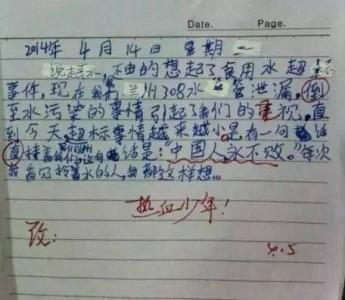 Date. Page.
2014年 4月14日 星期一
说起水,不由的想起了食用水超标
事件,现在 兰州308水管泄漏,倒
至水污染的事情引起了我们的重视,直
到今天超标事情越来越小是有一句话
直 话是:“中国人永不败。”每次
我看见拎着水的人,我都这样想。
热血少年!
改:
4.5